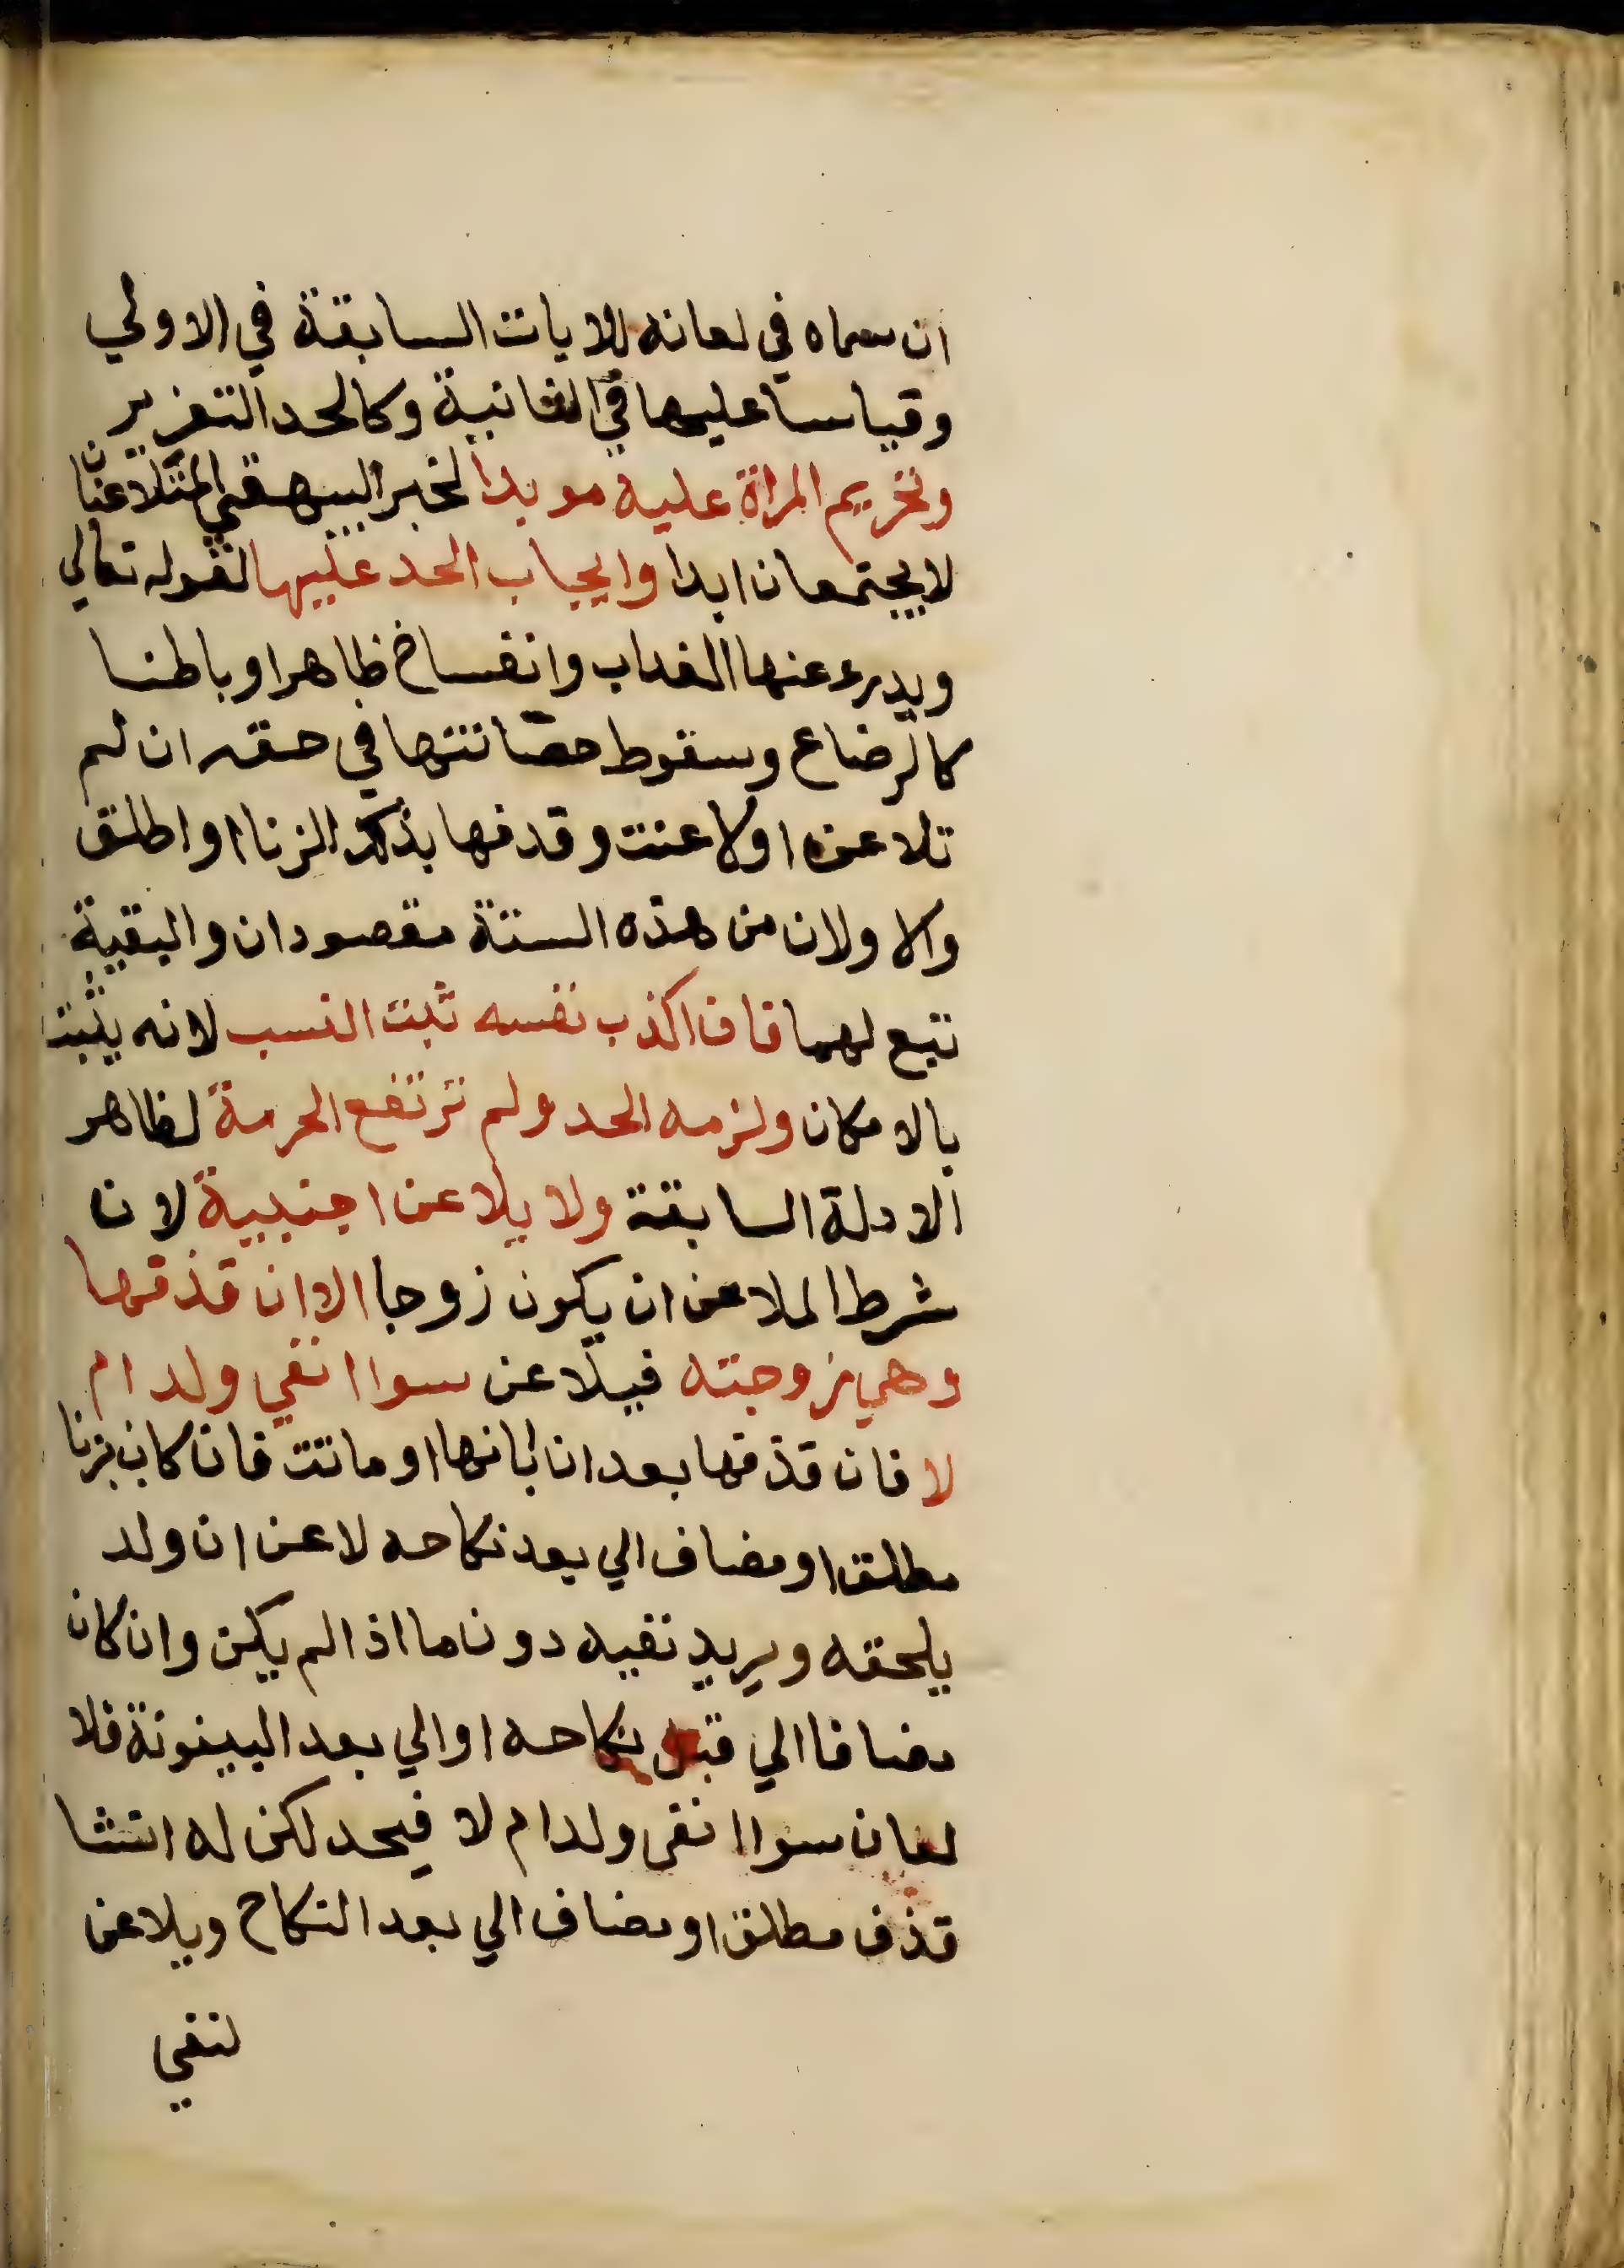 ان سماه في لعانه للايات السابقة في الاولي
وقياسا عليها في الثانية وكالحد التعزير
وتحريم المراة عليه موبدا لخبر البيهقي المتلاعنان
لا يجتمعان ابدا وايجاب الحد عليها لقوله تعالي
ويدرء عنها العذاب وانفساخ ظاهرا وباطنا
كالرضاع وسقوط حصانتها في حقه ان لم
تلاعن اولاعنت وقذفها بذلك الزنا او اطلق
والاولان من هذه الستة مقصودان والبقية
تبع لهما فان اكذب نفسه ثبت النسب لانه يثبت
بالامكان ولزمه الحد ولم ترتفع الحرمة لظاهر
الادلة السابقة ولا يلاعن اجنبية لان
شرط الملاعن ان يكون زوجا الا ان قذفها
وهي زوجته فيلاعن سوا انفي ولد ام
لا فان قذفها بعد ان ابانها او ماتت فان كان بزنا
مطلق او مضاف الي بعد نكاحه لاعن ان ولد
يلحقه ويريد نفيه دون ما اذا لم يكن وان كان
مضافا الي قبل نكاحه او الي بعد البينونة فلا
لعان سوا انفي ولد ام لا فيحد لكن له انشا
قذف مطلق او مضاف الي بعد النكاح ويلاعن
لنفي